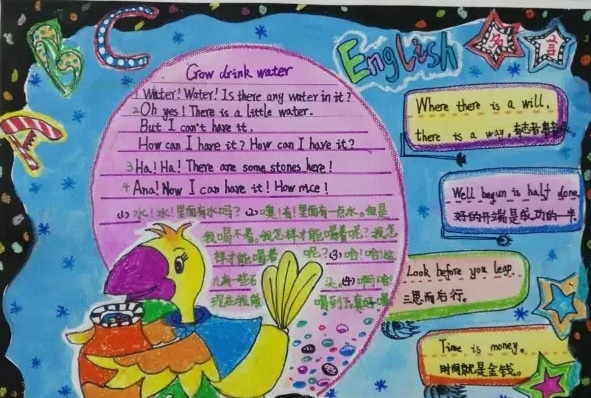 A B C
English
名言
Crow drink water
1 Water! Water! Is there any water in it?
2 Oh yes! There is a little water.
But I can't have it.
How can I have it? How can I have it?
3 Ha! Ha! There are some stones here!
4 Ana! Now I can have it! How nice!
(1) 水!水!里面有水吗? (2) 噢!有!里面有一点水。但是
我喝不着。我怎样才能喝着呢?我怎
样才能喝着 呢?(3) 哈!哈!这
儿有一些石 头。(4) 啊哈!
现在我能 喝到了!真好喝
Where there is a will,
there is a way. 有志者事竟
Well begun is half done
好的开端是成功的一半
Look before you leap
三思而后行。
Time is money.
时间就是金钱。